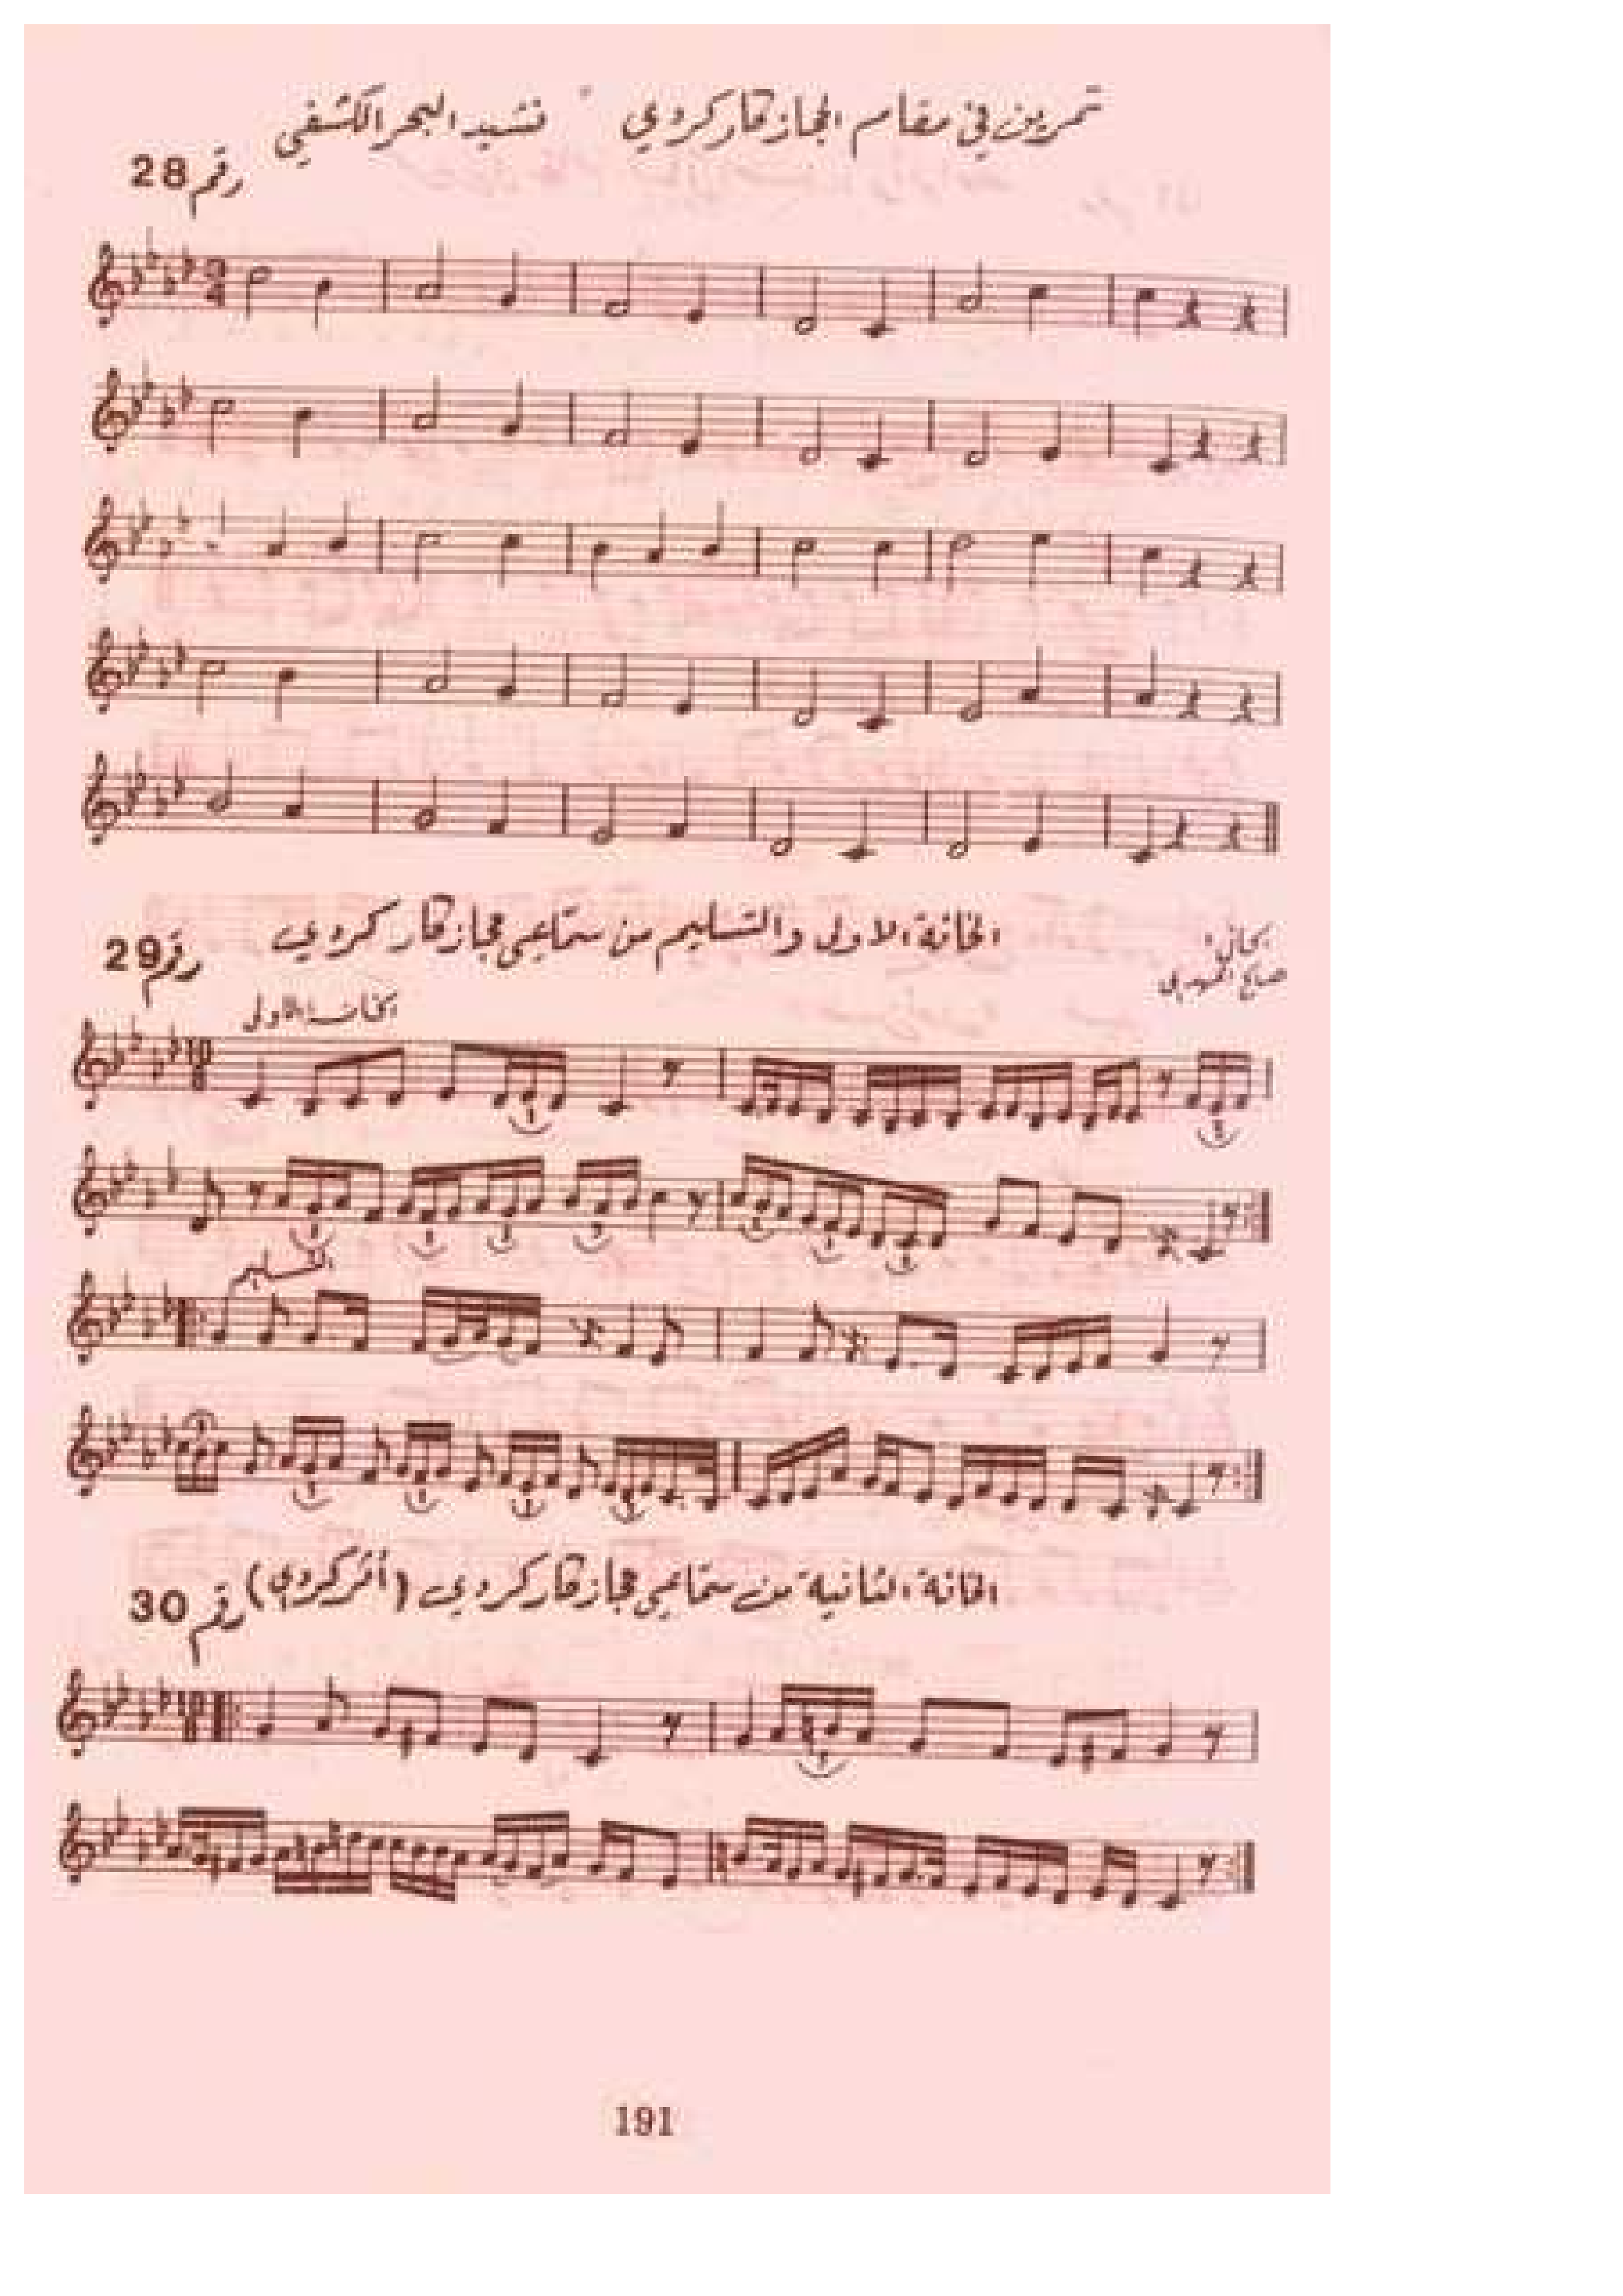 تمرين في مقام الحجاز كار كردي - نشيد البحر الكشفي
رقم 28
الخانة الاولى والتسليم من سماعي حجاز كار كردي
رقم 29
صالح المهدي
الخانة الاولى
التسليم
الخانة الثانية من سماعي حجاز كار كردي (أثر كردي)
رقم 30
191